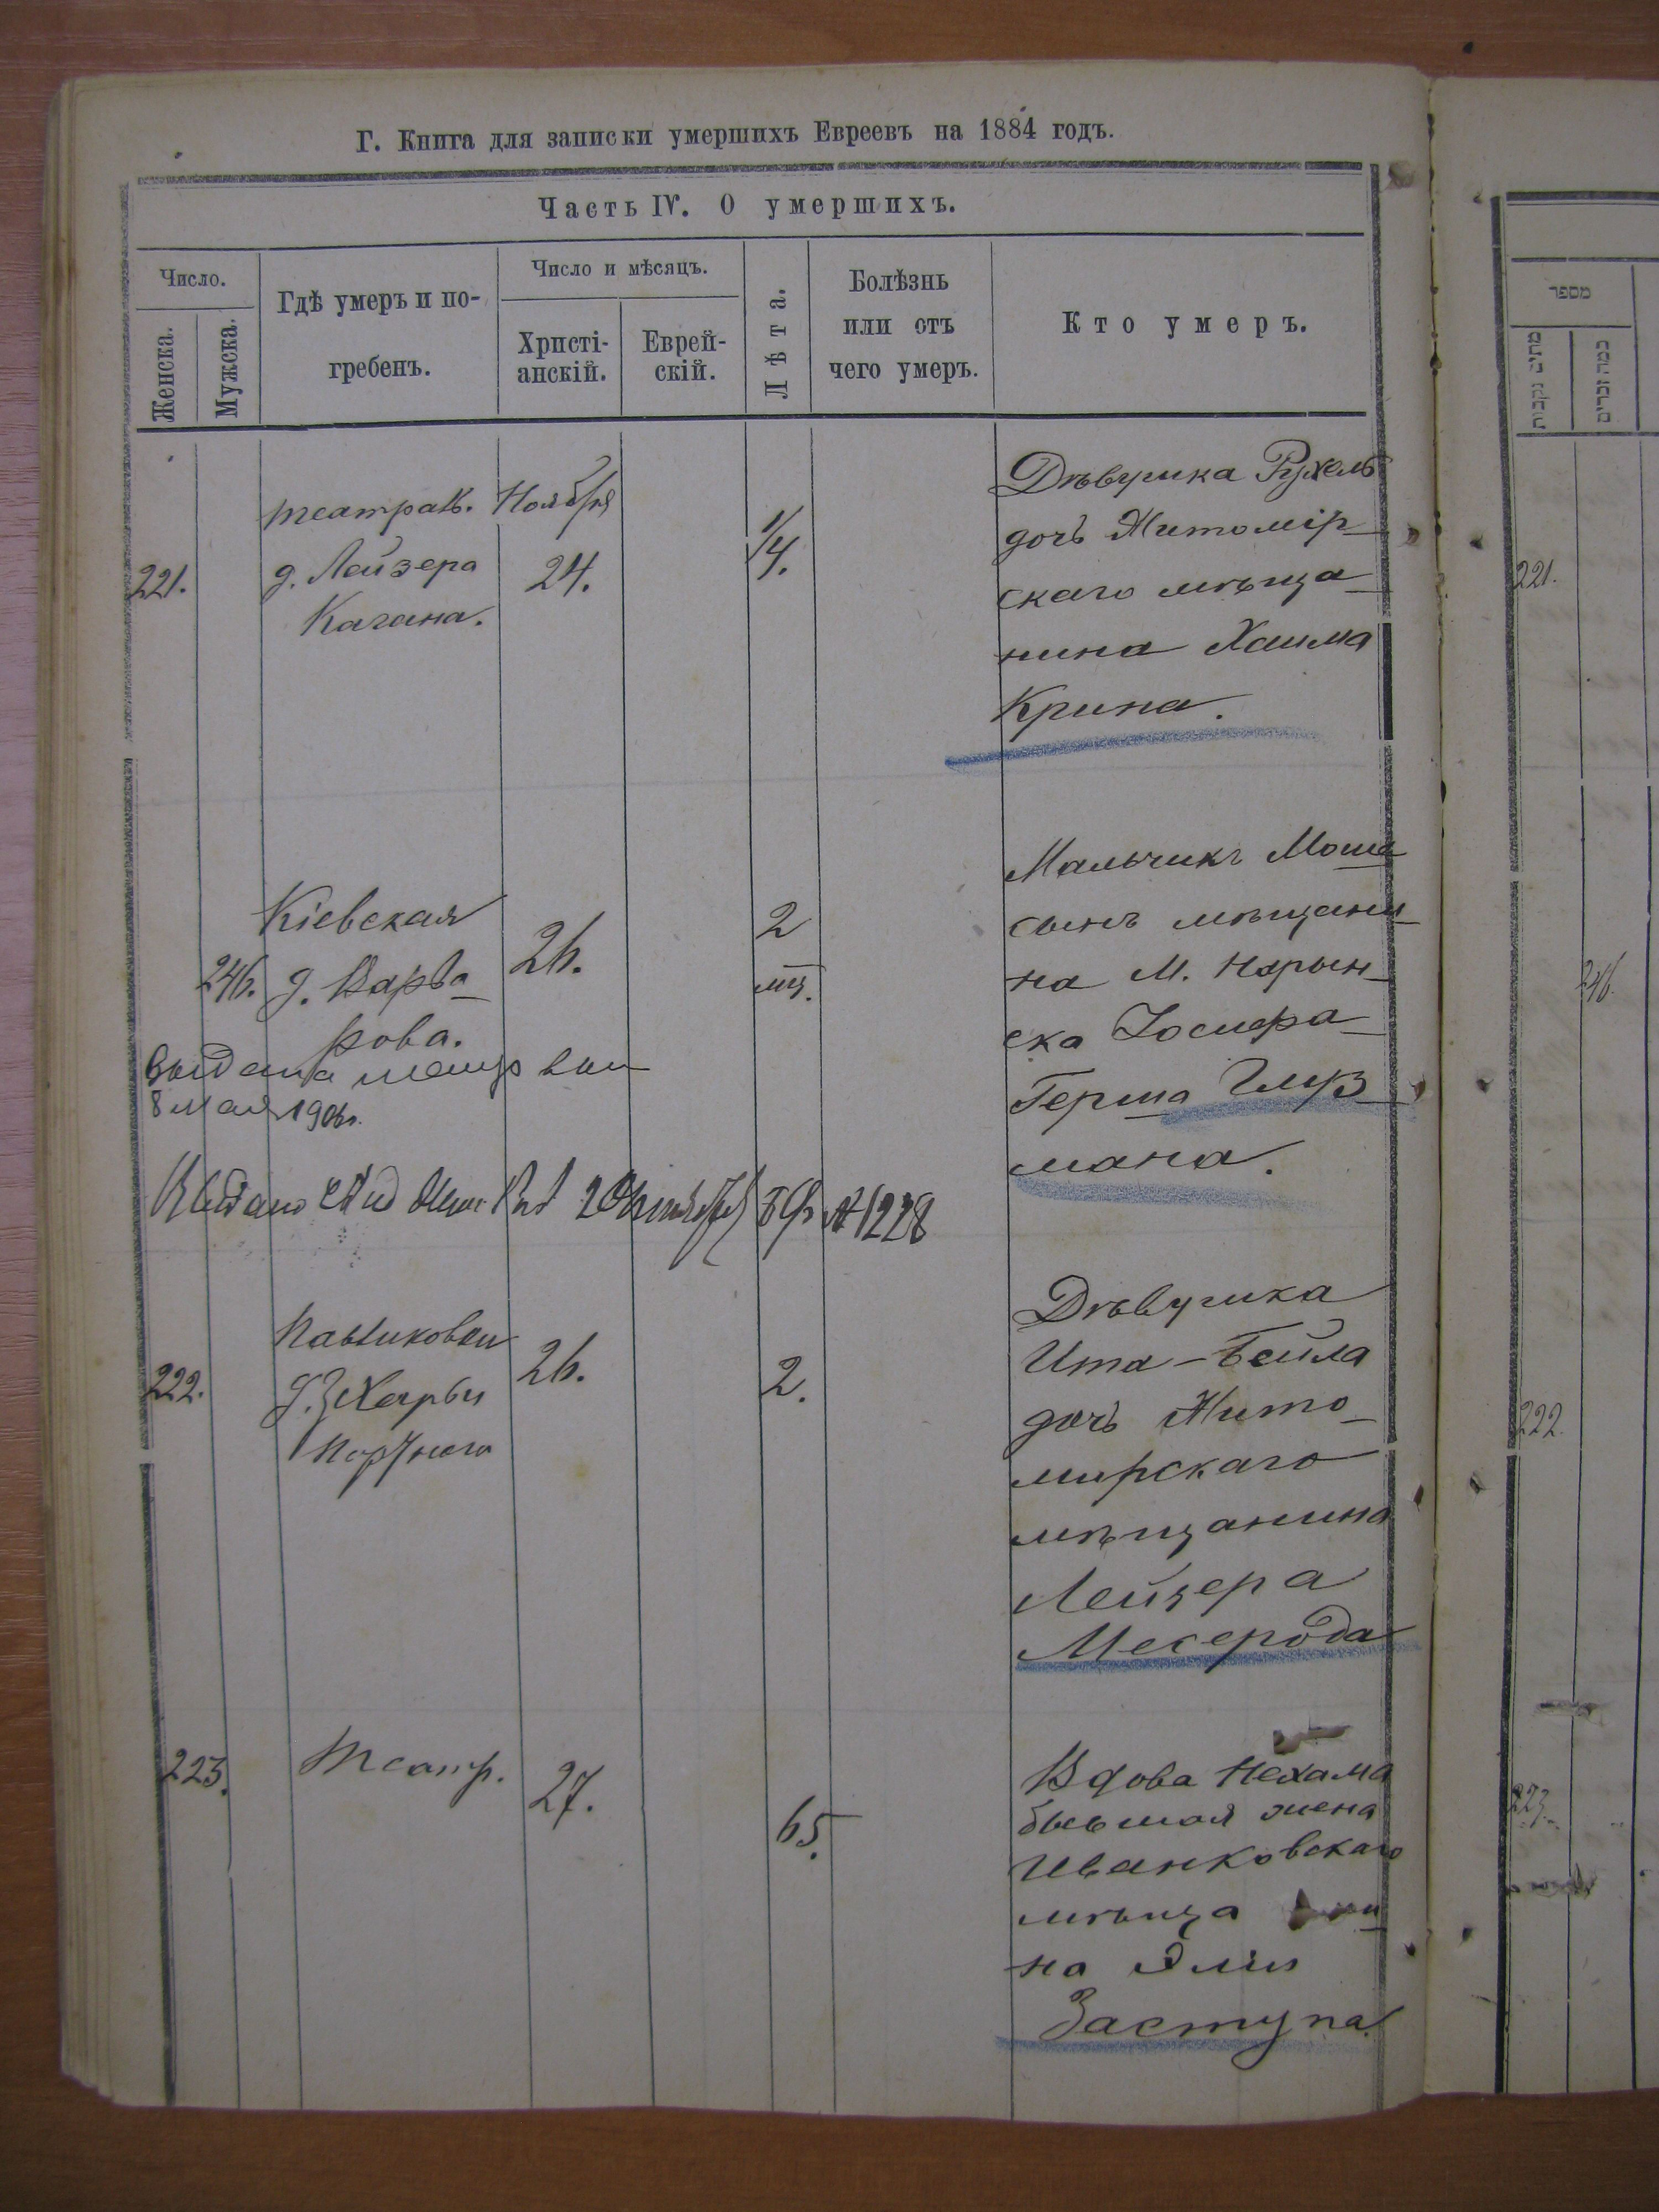 Г. Книга для записки умершихъ Евреевъ на 1884 годъ.
Часть IV. О умершихъ.
Число.
Женска.
Мужска.
Гдѣ умеръ и по-
гребенъ.
Число и мѣсяцъ.
Христі-
анскій.
Еврей-
скій.
Лѣта.
Болѣзнь
или отъ
чего умеръ.
Кто умеръ.
221.
театрал.
д. Лейзера
Кагана.
Ноября
24.
1/4.
Дѣвушка Рухель
дочь Житомір-
скаго мѣща-
нина Хаима
Крина.
246.
Кіевская
д. Варва-
рова.
26.
2
мц.
Мальчикъ Моша
сынъ мѣщани-
на М. Нарын-
ска Іосифа-
Герша Глуз-
мана.
выдана
8 мая 1906г.
Выдано № 1228
222.
д. Захарьи
Портнаго
26.
2.
Дѣвушка
Ита-Бейла
дочь Жито-
мирскаго
мѣщанина
Лейзера
Месерода
223.
Театр.
27.
65.
Вдова Нехама
бывшая жена
Иванковскаго
мѣща
на Эліи
Заступа.
מספר
מתים נקבות
כמה זכרים
221.
246.
222.
223.